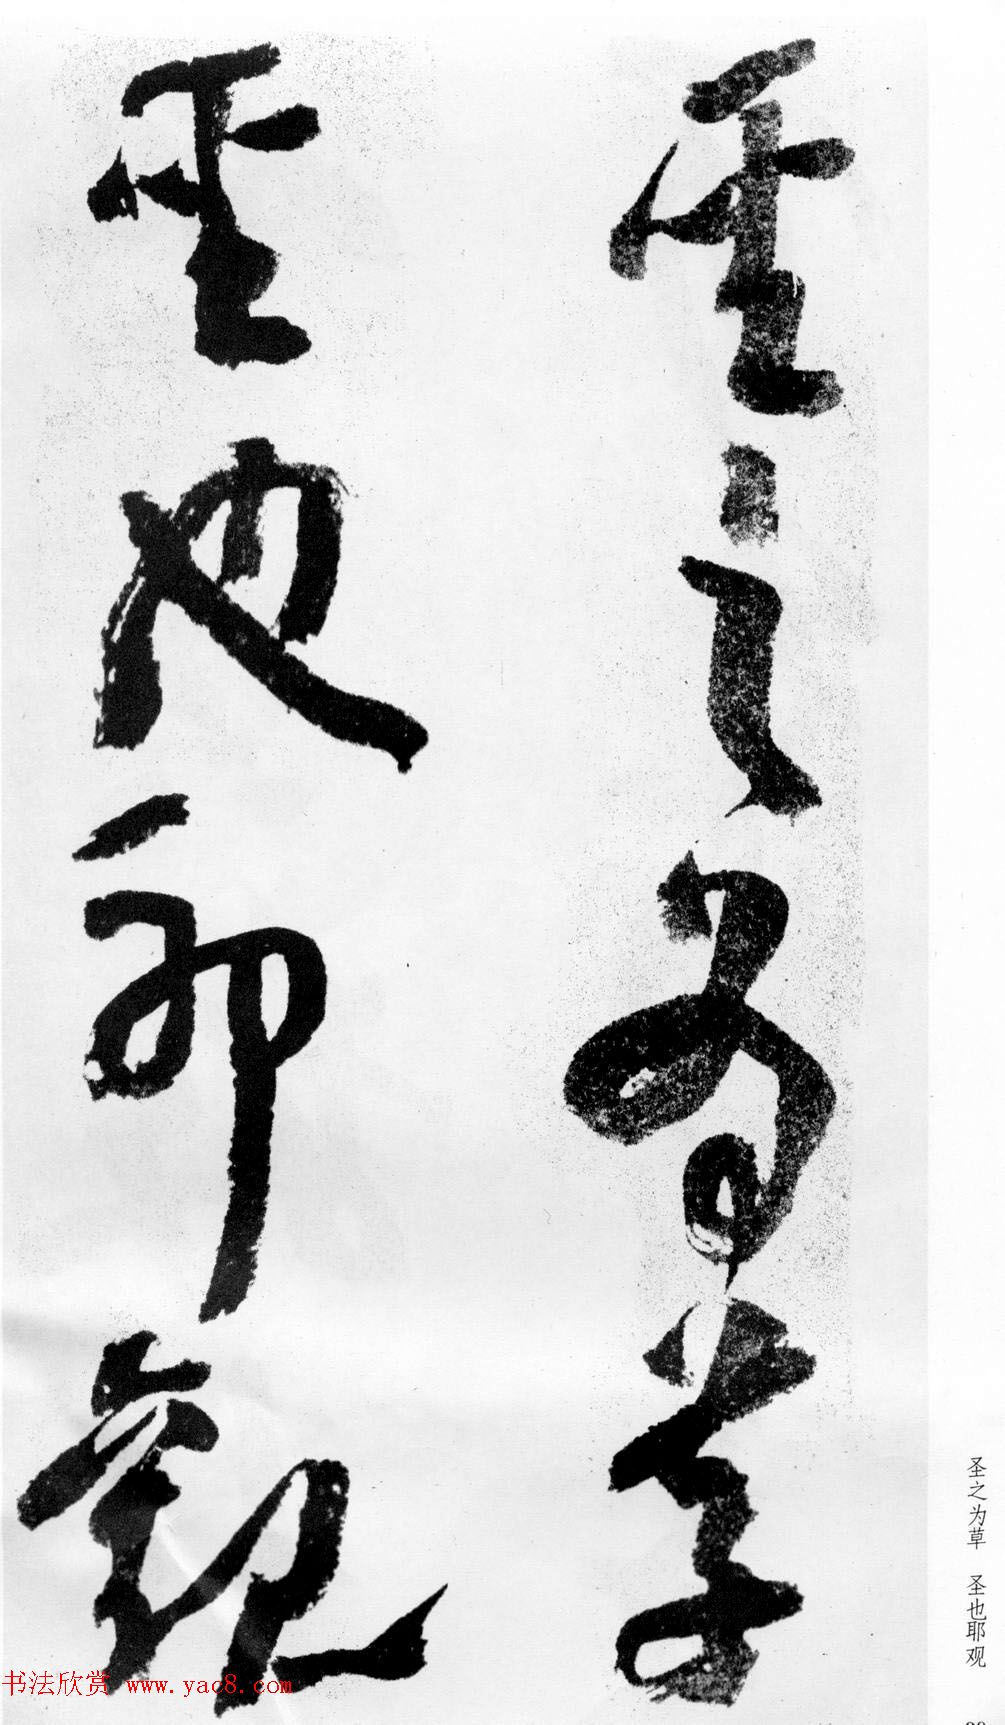 聖之為草
聖也耶觀
圣之为草　圣也耶观
书法欣赏 www.yac8.com